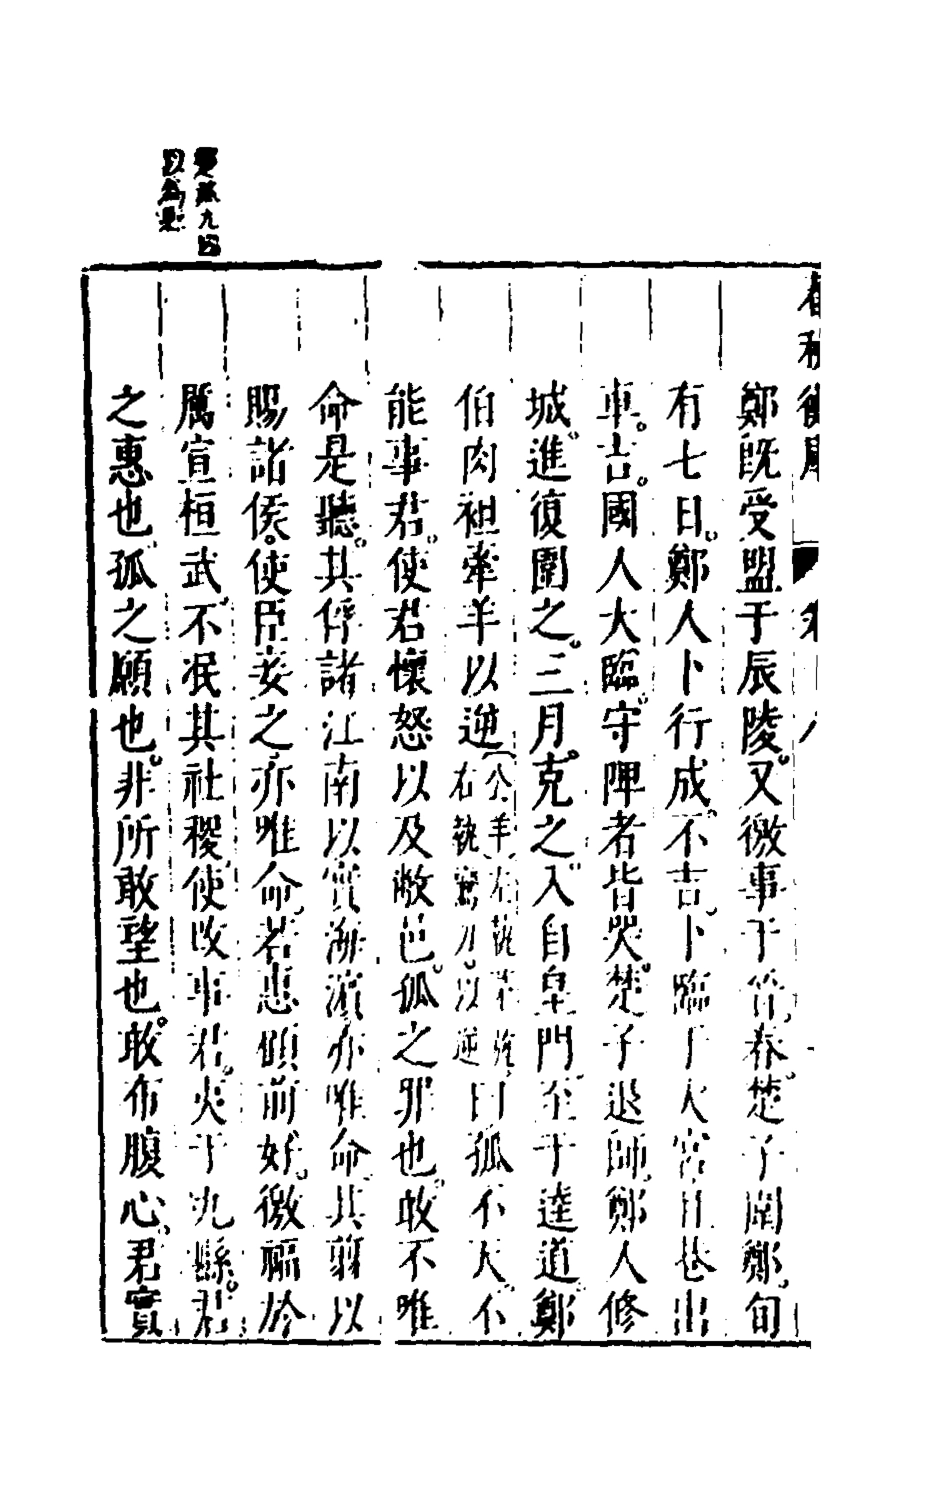 春秋衡庫　卷十八
鄭既受盟于辰陵。又徼事于晉。春。楚子圍鄭。旬
有七日。鄭人卜行成。不吉。卜臨于大宮且巷出
車。吉。國人大臨。守陴者皆哭。楚子退師。鄭人修
城。進復圍之。三月。克之。入自皇門。至于逵道。鄭
伯肉袒牽羊以逆（公羊左執茅旌。右執鸞刀。以逆曰孤不天。不
能事君。使君懷怒以及敝邑。孤之罪也。敢不唯
命是聽。其俘諸江南以實海濱。亦唯命。其翦以
賜諸侯。使臣妾之。亦唯命。若惠顧前好。徼福於
厲宣桓武。不泯其社稷。使改事君。夷于九縣。君
之惠也。孤之願也。非所敢望也。敢布腹心。君實
楚滅九國
以為縣